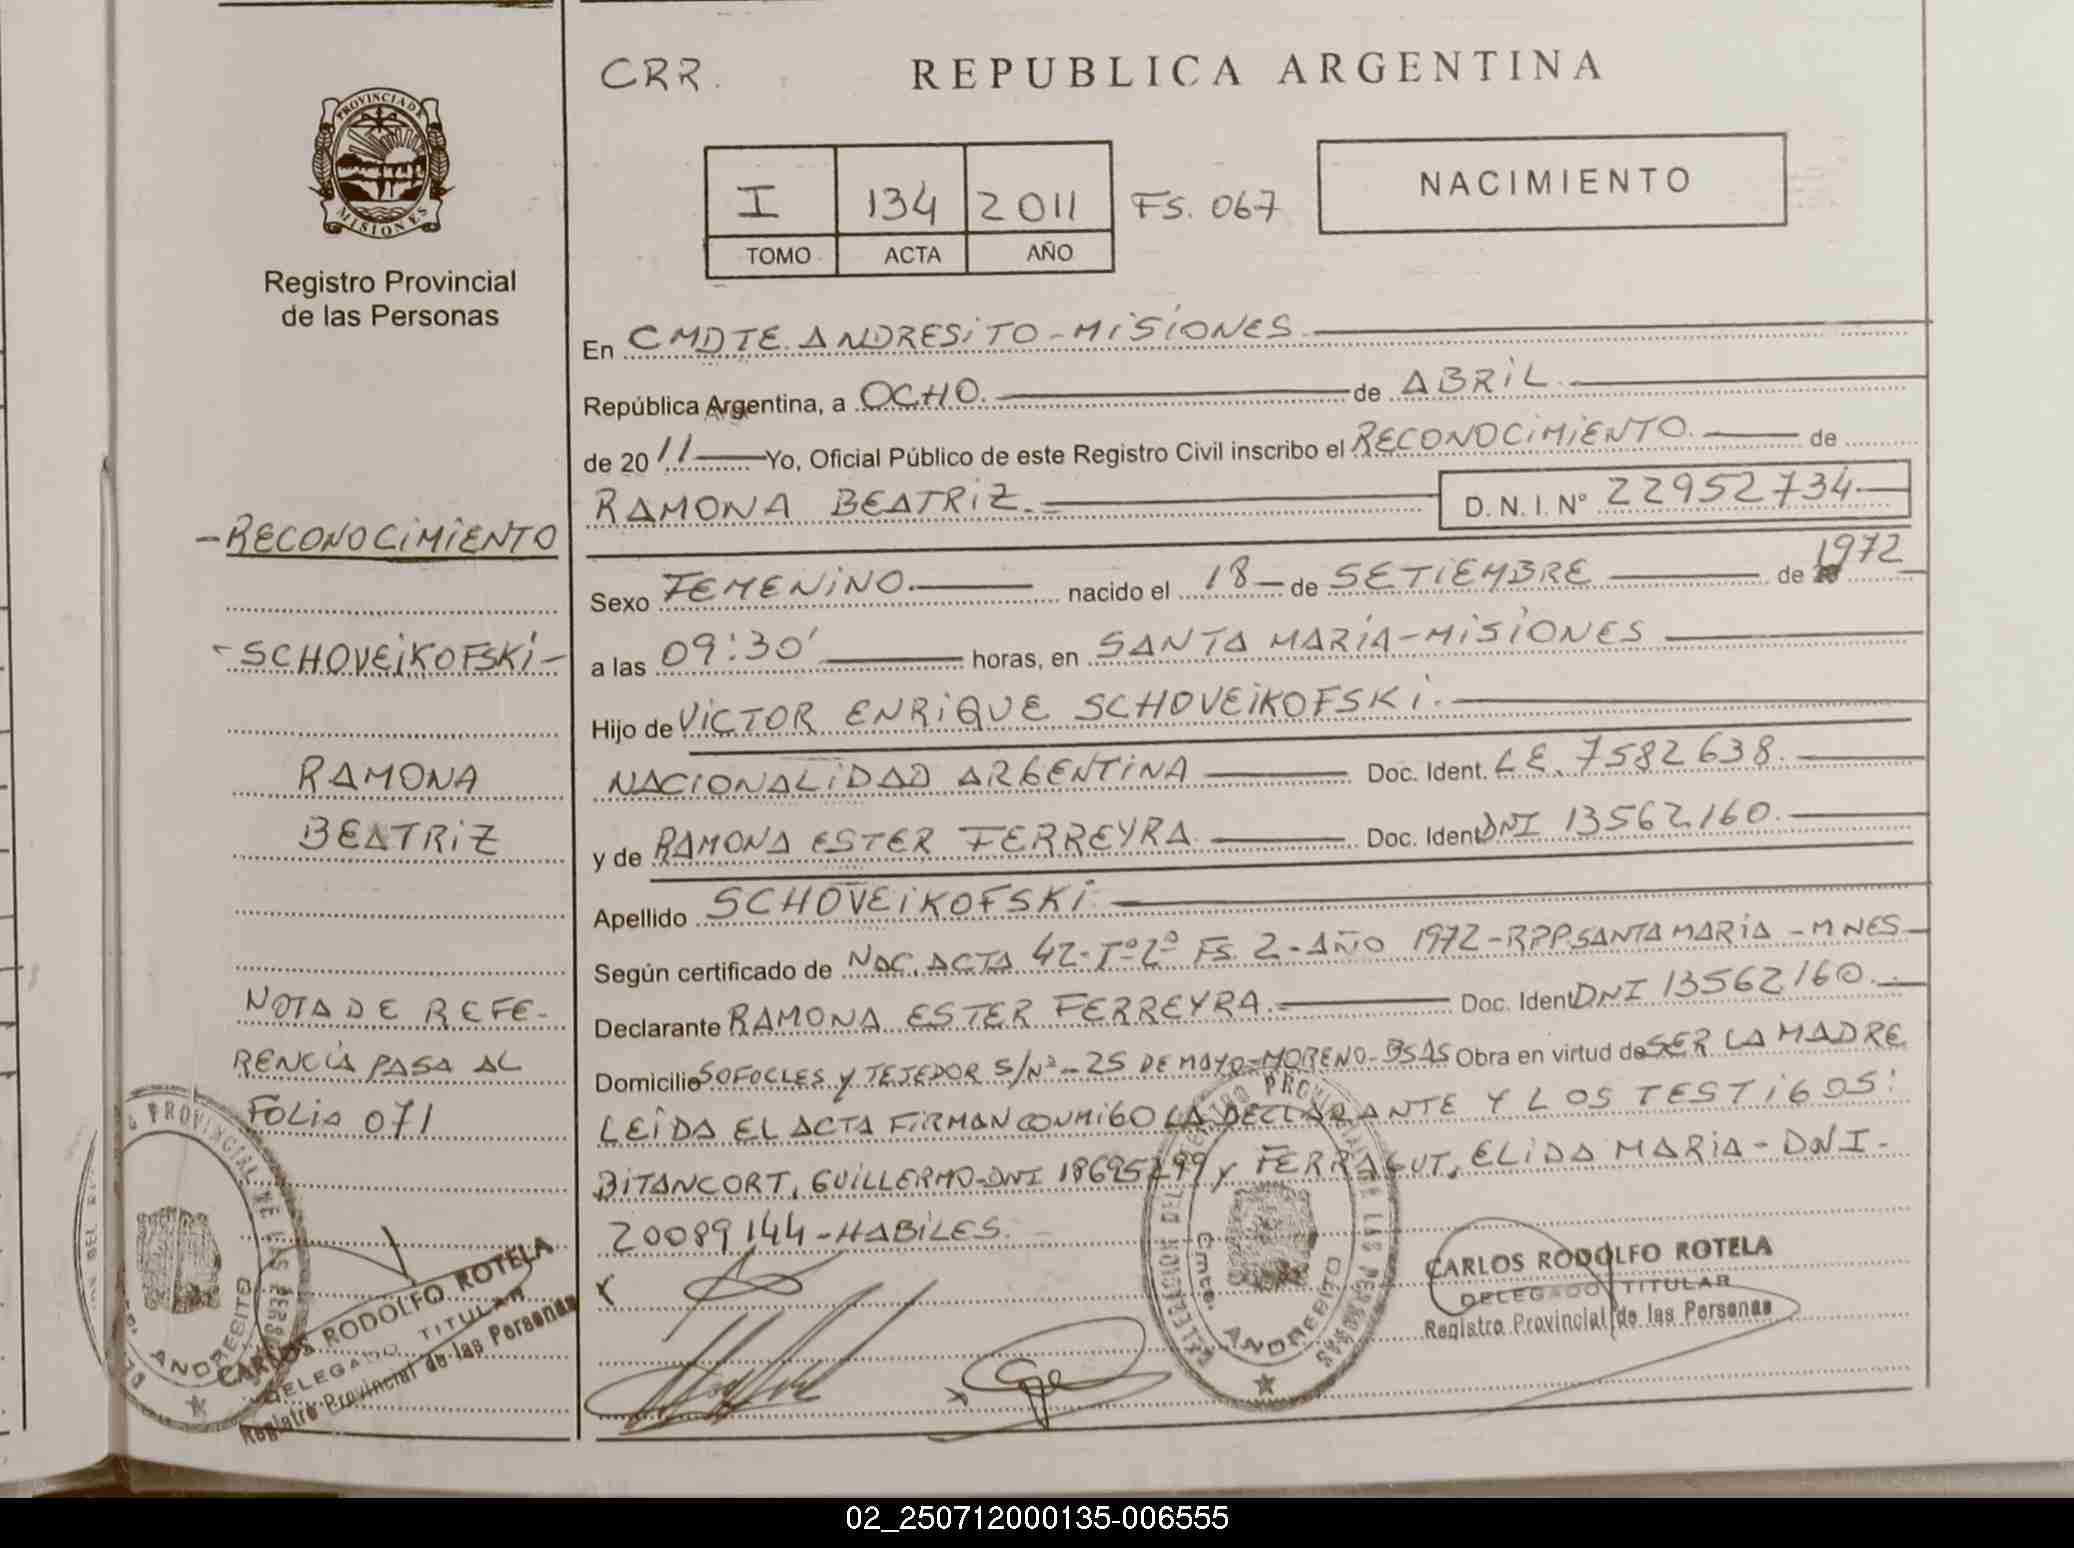 CRR.
REPUBLICA ARGENTINA
PROVINCIA DE
MISIONES
Registro Provincial
de las Personas
I 134 2011 FS. 067
TOMO ACTA AÑO
NACIMIENTO
En CMDTE. ANDRESITO - MISIONES
República Argentina, a OCHO. de ABRIL.
de 2011 Yo, Oficial Público de este Registro Civil inscribo el RECONOCIMIENTO. de
RAMONA BEATRIZ. D. N. I. Nº 22952734
Sexo FEMENINO. nacido el 18 de SETIEMBRE de 1972
a las 09:30' horas, en SANTA MARIA - MISIONES
Hijo de VICTOR ENRIQUE SCHOVEIKOFSKI.
NACIONALIDAD ARGENTINA Doc. Ident. L.E. 7582638.
y de RAMONA ESTER FERREYRA. Doc. Ident DNI 13562160.
Apellido SCHOVEIKOFSKI.
Según certificado de NAC. ACTA 42-Tº2º FS. 2 - AÑO 1972 - RPP. SANTA MARIA - MNES
Declarante RAMONA ESTER FERREYRA. Doc. Ident DNI 13562160.
Domicilio SOFOCLES Y TEJEDOR S/Nº - 25 DE MAYO - MORENO - BSAS Obra en virtud de SER LA MADRE
LEIDA EL ACTA FIRMAN CONMIGO LA DECLARANTE Y LOS TESTIGOS:
BITANCORT, GUILLERMO - DNI 18695299 y FERRAGUT, ELIDA MARIA - DNI -
20089144 - HABILES.
- RECONOCIMIENTO
- SCHOVEIKOFSKI -
RAMONA
BEATRIZ
NOTA DE REFE-
RENCIA PASA AL
FOLIO 071
CARLOS RODOLFO ROTELA
DELEGADO TITULAR
Registro Provincial de las Personas
PROVINCIAL DE LAS PERS
ANDRESITO
Cmte. ANDRESITO
CARLOS RODOLFO ROTELA
DELEGADO TITULAR
Registro Provincial de las Personas
02_250712000135-006555